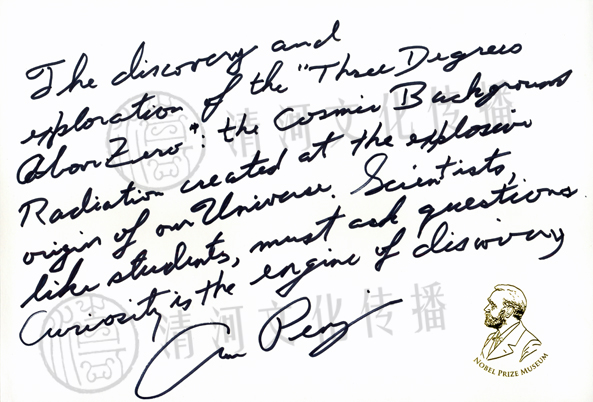 The discovery and
exploration of the "Three Degrees
Above Zero": the Cosmic Background
Radiation created at the explosive
origin of our Universe. Scientists,
like students, must ask questions.
Curiosity is the engine of discovery
Arno Penzias
清河文化传播
清河文化传播
NOBEL PRIZE MUSEUM